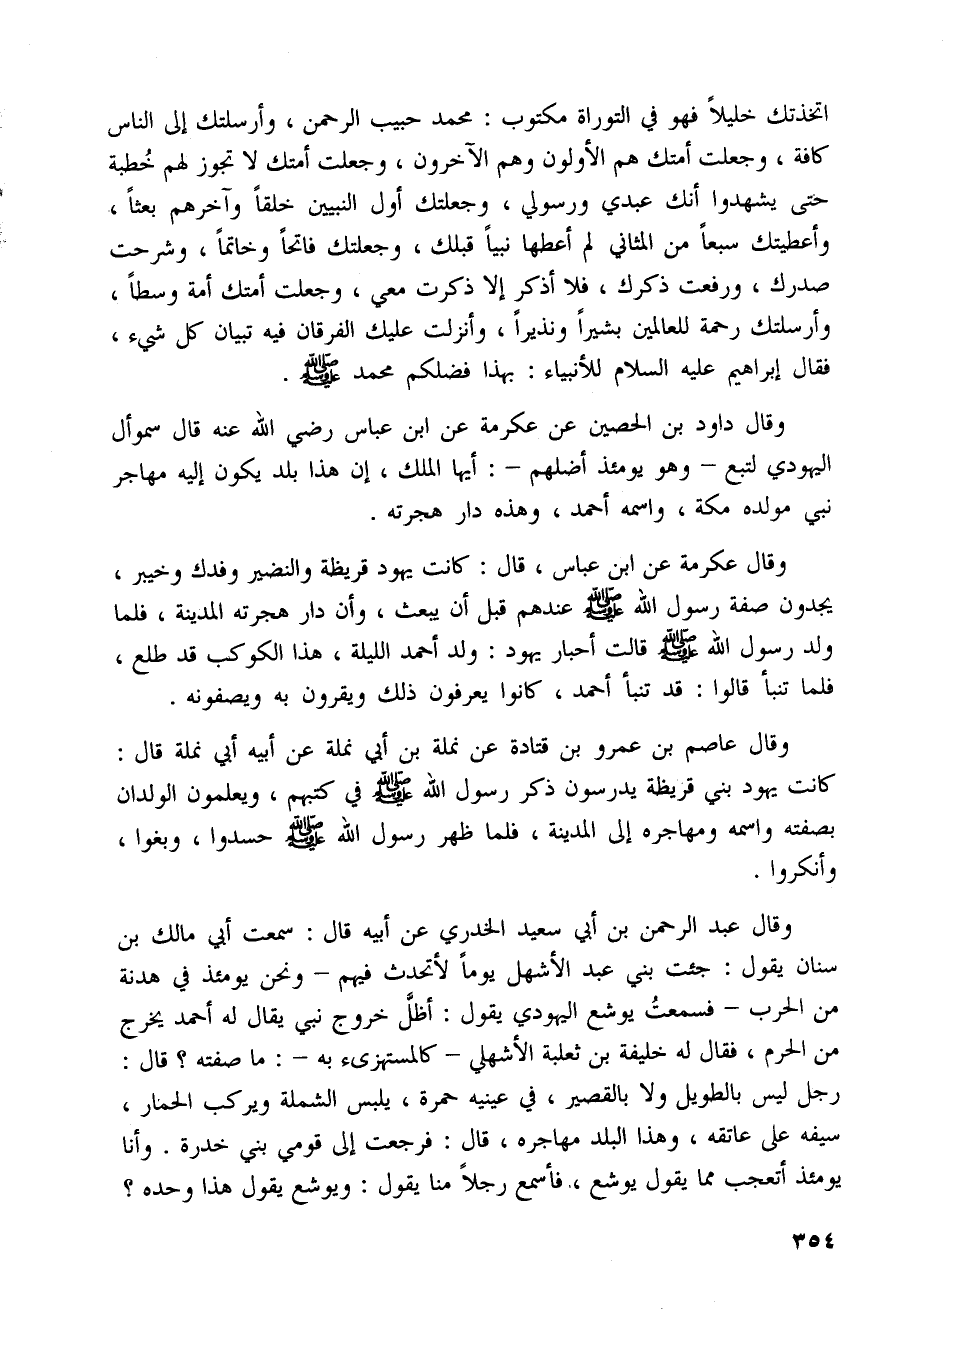 اتخذتك خليلاً فهو في التوراة مكتوب : محمد حبيب الرحمن ، وأرسلتك إلى الناس
كافة ، وجعلت أمتك هم الأولون وهم الآخرون ، وجعلت أمتك لا تجوز لهم خُطبة
حتى يشهدوا أنك عبدي ورسولي ، وجعلتك أول النبيين خلقاً وآخرهم بعثاً ،
وأعطيتك سبعاً من المثاني لم أعطها نبياً قبلك ، وجعلتك فاتحاً وخاتماً ، وشرحت
صدرك ، ورفعت ذكرك ، فلا أذكر إلا ذكرت معي ، وجعلت أمتك أمة وسطاً ،
وأرسلتك رحمة للعالمين بشيراً ونذيراً ، وأنزلت عليك الفرقان فيه تبيان كل شيء ،
فقال إبراهيم عليه السلام للأنبياء : بهذا فضلكم محمد ﷺ .
وقال داود بن الحصين عن عكرمة عن ابن عباس رضي الله عنه قال سموأل
اليهودي لتبع – وهو يومئذ أضلهم – : أيها الملك ، إن هذا بلد يكون إليه مهاجر
نبي مولده مكة ، واسمه أحمد ، وهذه دار هجرته .
وقال عكرمة عن ابن عباس ، قال : كانت يهود قريظة والنضير وفدك وخيبر ،
يجدون صفة رسول الله ﷺ عندهم قبل أن يبعث ، وأن دار هجرته المدينة ، فلما
ولد رسول الله ﷺ قالت أحبار يهود : ولد أحمد الليلة ، هذا الكوكب قد طلع ،
فلما تنبأ قالوا : قد تنبأ أحمد ، كانوا يعرفون ذلك ويقرون به ويصفونه .
وقال عاصم بن عمرو بن قتادة عن نملة بن أبي نملة عن أبيه أبي نملة قال :
كانت يهود بني قريظة يدرسون ذكر رسول الله ﷺ في كتبهم ، ويعلمون الولدان
بصفته واسمه ومهاجره إلى المدينة ، فلما ظهر رسول الله ﷺ حسدوا ، وبغوا ،
وأنكروا .
وقال عبد الرحمن بن أبي سعيد الخدري عن أبيه قال : سمعت أبي مالك بن
سنان يقول : جئت بني عبد الأشهل يوماً لأتحدث فيهم – ونحن يومئذ في هدنة
من الحرب – فسمعتُ يوشع اليهودي يقول : أظلَّ خروج نبي يقال له أحمد يخرج
من الحرم ، فقال له خليفة بن ثعلبة الأشهلي – كالمستهزىء به – : ما صفته ؟ قال :
رجل ليس بالطويل ولا بالقصير ، في عينيه حمرة ، يلبس الشملة ويركب الحمار ،
سيفه على عاتقه ، وهذا البلد مهاجره ، قال : فرجعت إلى قومي بني خدرة . وأنا
يومئذ أتعجب مما يقول يوشع ، فأسمع رجلاً منا يقول : ويوشع يقول هذا وحده ؟
٣٥٤